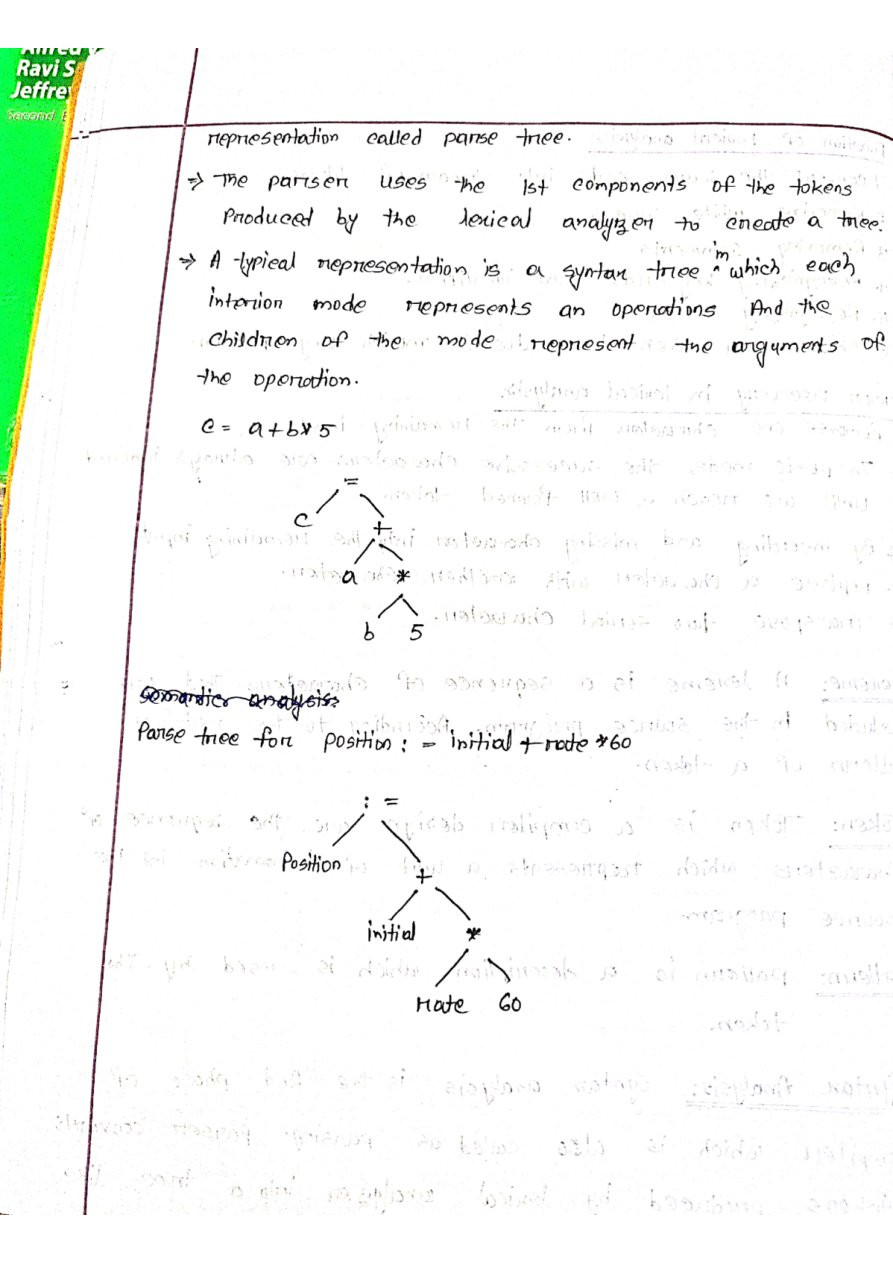 Ravi S
Jeffrey
Second E
representation called parse tree.
⇒ The parser uses the 1st components of the tokens
Produced by the lexical analyzer to create a tree.
⇒ A typical representation is a syntax tree ^in which each
interior mode represents an operations And the
children of the mode represent the arguments of
the operation.
C = a+b*5
=
C +
a *
b 5
Semantic analysis:
Parse tree for position : = initial + rate *60
: =
Position +
initial *
rate 60